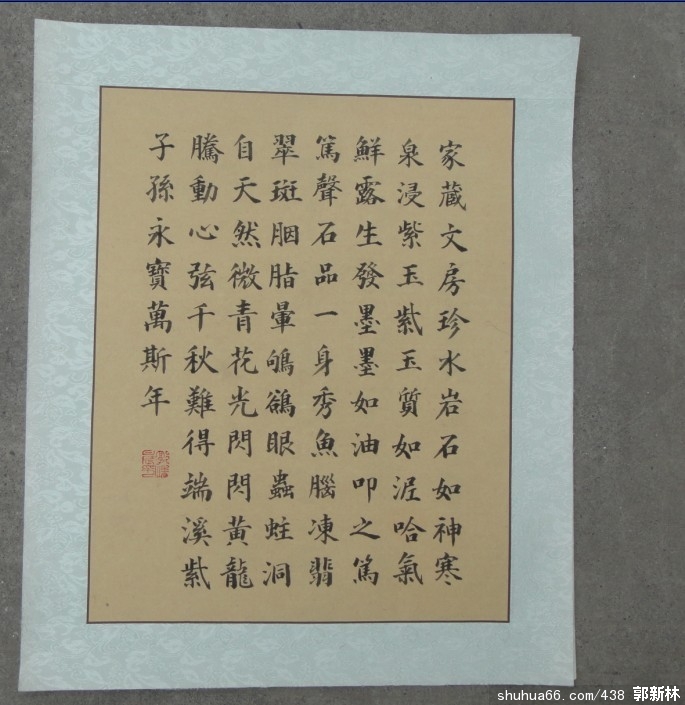 家藏文房珍水岩石如神寒
泉浸紫玉紫玉質如泥哈氣
鮮露生發墨墨如油叩之篤
篤聲石品一身秀魚腦凍翡
翠斑胭脂暈鴝鵒眼蟲蛀洞
自天然微青花光閃閃黃龍
騰動心弦千秋難得端溪紫
子孫永寶萬斯年
shuhua66.com/438 郭新林